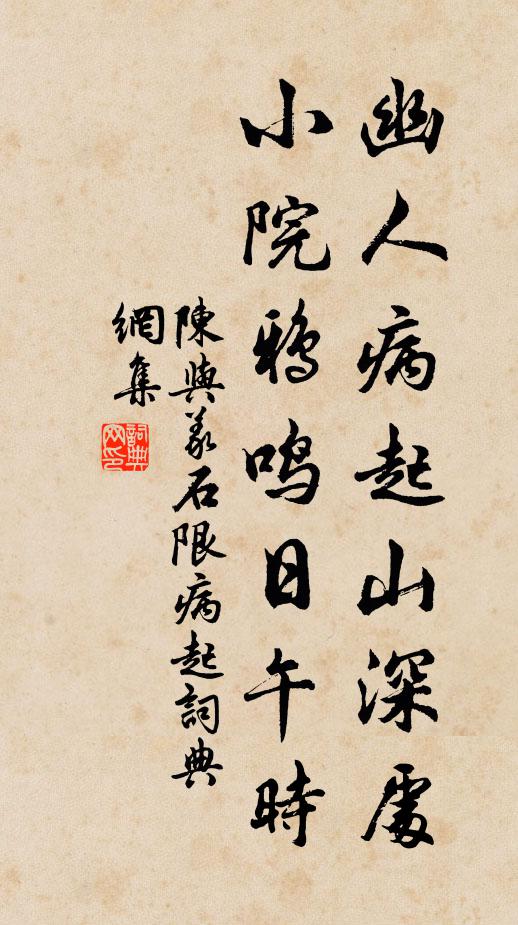 幽人病起山深處
小院鴉鳴日午時
陳與義石限病起詞典
網集
詞典
网印